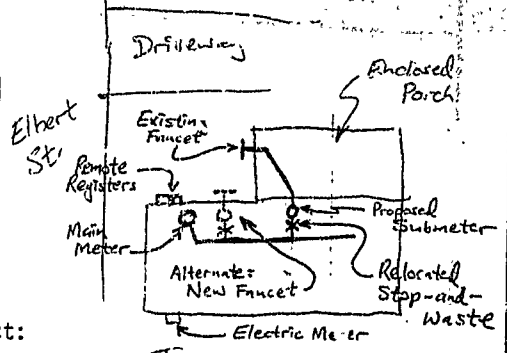 Driveway
Enclosed
Porch
Elbert
St.
Existing
Faucet
Remote
Registers
Main
Meter
Proposed
Submeter
Alternate:
New Faucet
Relocated
Stop-and-
Waste
Electric Meter
ct: